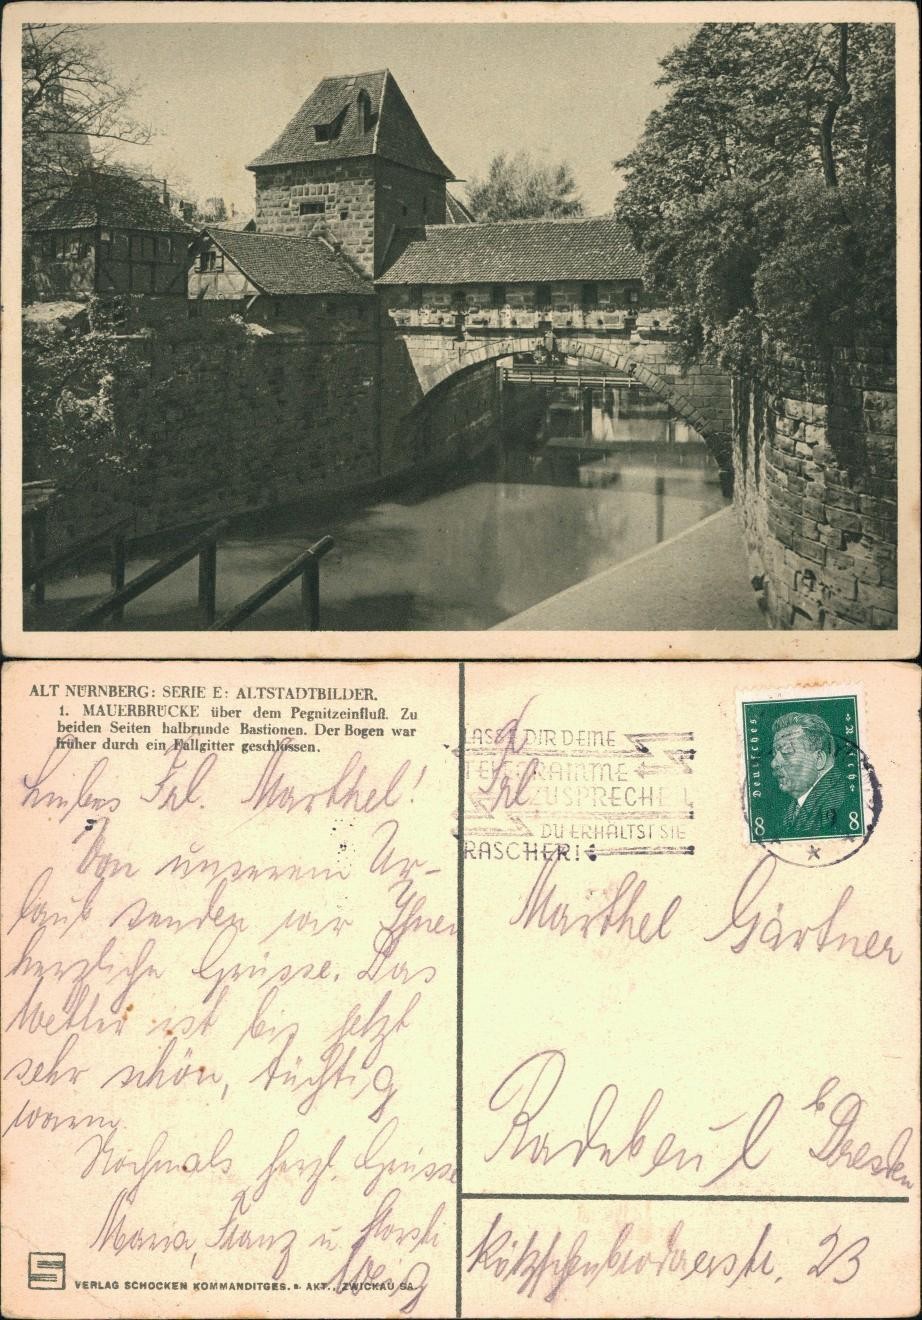 ALT NÜRNBERG: SERIE E: ALTSTADTBILDER.
1. MAUERBRÜCKE über dem Pegnitzeinfluß. Zu
beiden Seiten halbrunde Bastionen. Der Bogen war
früher durch ein Fallgitter geschlossen.
Liebes Frl. Marthel!
Von unserem Ur-
laub senden wir Ihnen
herzliche Grüsse. Das
Wetter ist bis jetzt
sehr schön, tüchtig
warm.
Nochmals herzl. Grüsse
Maria, Franz u. Horsti
VERLAG SCHOCKEN KOMMANDITGES. a. AKT., ZWICKAU SA.
LASSE DIR DEINE
TELEGRAMME
ZUSPRECHEN
DU ERHÄLTST SIE
RASCHER!
Deutsches Reich
8 8
Frl
Marthel Gärtner
Radebeul b Dresden
Kötzschenbrodaerstr. 23